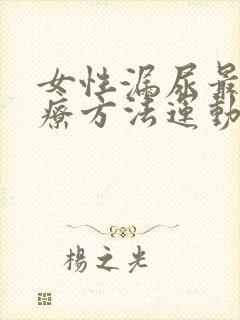 女性漏尿最
療方法運動
楊之光